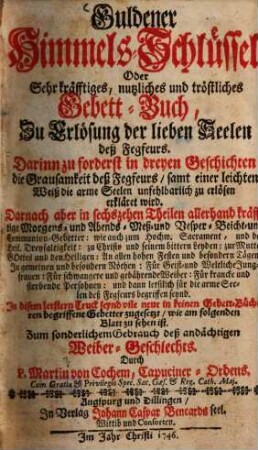 Guldener
Himmels-Schlüssel
Oder
Sehr kräfftiges, nutzliches und tröstliches
Gebett-Buch,
Zu Erlösung der lieben Seelen
deß Fegfeurs.
Darinn zu forderst in dreyen Geschichten
die Grausamkeit deß Fegfeurs / samt einer leichten
Weiß die arme Seelen unfehlbarlich zu erlösen
erkläret wird.
Darnach aber in sechszehen Theilen allerhand kräff-
tige Morgens- und Abends- Meß- und Vesper- Beicht- und
Communion-Gebetter: wie auch zum Hochw. Sacrament, und der
Heil. Dreyfaltigkeit: zu Christo und seinem bittern Leyden: zur Mutter
GOttes und den Heiligen: An allen hohen Festen und besondern Tägen:
In gemeinen und besondern Nöthen: Für Geist- und Weltliche Jung-
frauen: Für schwangere und gebährende Weiber: Für krancke und
sterbende Persohnen: und dann letstlich für die arme See-
len deß Fegfeurs begriffen seynd.
In disem letstern Truck seynd vile neue in keinen Gebett-Büche-
ren begriffene Gebetter zugesetzt / wie am folgenden
Blatt zu sehen ist.
Zum sonderlichem Gebrauch deß andächtigen
Weiber-Geschlechts.
Durch
P. Martin von Cochem, Capuciner-Ordens.
Cum Gratia & Privilegio Spec. Sac. Cæs. & Reg. Cath. Maj.
Augspurg und Dillingen /
In Verlag Johann Caspar Bencards seel.
Wittib und Consorten.
Im Jahr Christi 1746.